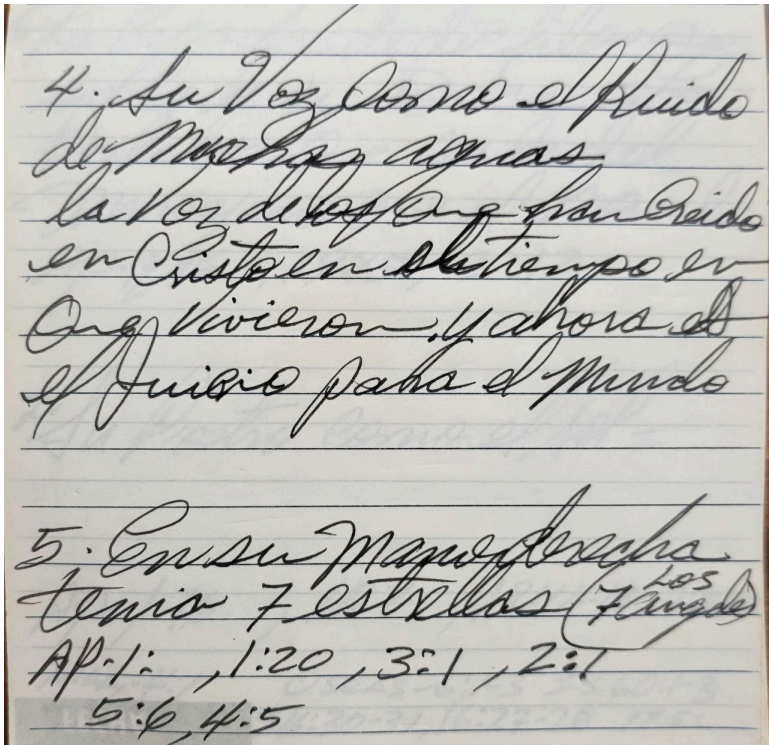 4. Su Voz Como el Ruido
de Muchas aguas
la Voz de los Que han Creido
en Cristo en el tiempo en
Que Vivieron, y ahora es
el Juicio para el Mundo
5. En su Mano derecha
tenia 7 estrellas (Los 7 angeles)
AP-1: , 1:20, 3:1, 2:1
5:6, 4:5